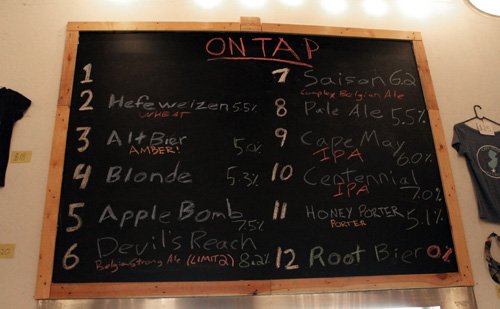 ON TAP
1
2 Hefeweizen 5.5%
WHEAT
3 Alt Bier 5.0%
AMBER!
4 Blonde 5.3%
5 Apple Bomb 7.5%
6 Devil's Reach
Belgian Strong Ale (LIMIT 2) 8.2%
7 Saison 6.2
Complex Belgian Ale
8 Pale Ale 5.5%
9 Cape May
IPA 6.0%
10 Centennial
IPA 7.0%
11 HONEY PORTER 5.1%
PORTER
12 Root Bier 0%